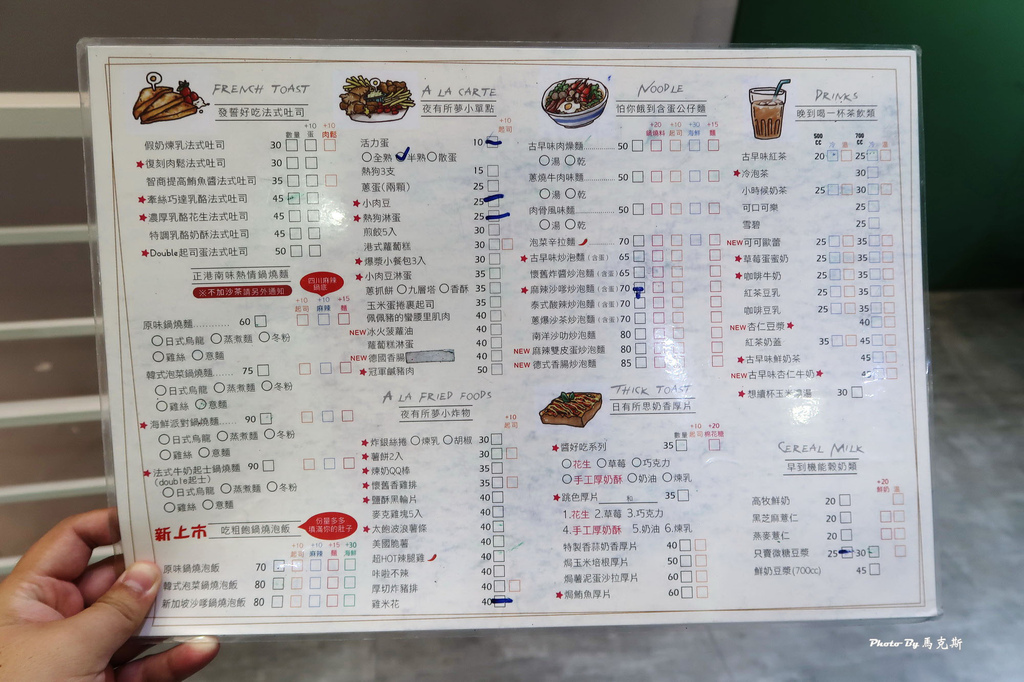 FRENCH TOAST
發誓好吃法式吐司
數量 +10蛋 +10肉鬆
假奶煉乳法式吐司 30
★復刻肉鬆法式吐司 30
智商提高鮪魚醬法式吐司 35
★牽絲巧達乳酪法式吐司 45
★濃厚乳酪花生法式吐司 45
特調乳酪奶酥法式吐司 45
★Double起司蛋法式吐司 50
正港南味熱情鍋燒麵
※不加沙茶請另外通知
四川麻辣鍋底
+10起司 +10麻辣 +15麵
原味鍋燒麵 60
日式烏龍 蒸煮麵 冬粉
雞絲 意麵
韓式泡菜鍋燒麵 75
日式烏龍 蒸煮麵 冬粉
雞絲 意麵
★海鮮派對鍋燒麵 90
日式烏龍 蒸煮麵 冬粉
雞絲 意麵
★法式牛奶起士鍋燒麵 90
(double起士)
日式烏龍 蒸煮麵 冬粉
雞絲 意麵
新上市 吃粗飽鍋燒泡飯
份量多多填滿你的肚子
+10起司 +10麻辣 +15麵 +30海鮮
原味鍋燒泡飯 70
韓式泡菜鍋燒泡飯 80
新加坡沙嗲鍋燒泡飯 80
A LA CARTE
夜有所夢小單點
+10起司
活力蛋 10
全熟 半熟 散蛋
熱狗3支 15
蔥蛋(兩顆) 25
★小肉豆 25
★熱狗淋蛋 25
煎餃5入 30
港式蘿蔔糕 30
★爆漿小餐包3入 30
★小肉豆淋蛋 35
蔥抓餅 九層塔 香酥 35
玉米蛋捲裹起司 35
佩佩豬的蠻腰里肌肉 40
NEW冰火菠蘿油 40
蘿蔔糕淋蛋 40
NEW德國香腸 40
★冠軍鹹豬肉 50
A LA FRIED FOODS
夜有所夢小炸物
+10起司
★炸銀絲捲 煉乳 胡椒 30
★薯餅2入 30
★煉奶QQ棒 35
★懷舊香雞排 35
★鹽酥黑輪片 40
麥克雞塊5入 40
★太飽波浪薯條 40
美國脆薯 40
超HOT辣腿雞 40
咔啦不辣 40
厚切炸豬排 40
雞米花 40
NOODLE
怕你餓到含蛋公仔麵
+20鍋燒料 +10起司 +30海鮮 +15麵
古早味肉燥麵 50
湯 乾
蔥燒牛肉味麵 50
湯 乾
肉骨風味麵 50
湯 乾
泡菜辛拉麵 70
★古早味炒泡麵(含蛋) 65
懷舊炸醬炒泡麵(含蛋) 65
★麻辣沙嗲炒泡麵(含蛋) 70
泰式酸辣炒泡麵(含蛋) 70
蔥爆沙茶炒泡麵(含蛋) 70
南洋沙叻炒泡麵 80
NEW麻辣雙皮蛋炒泡麵 80
NEW德式香腸炒泡麵 85
THICK TOAST
日有所思奶香厚片
數量 +10起司 +20棉花糖
★醬好吃系列 35
花生 草莓 巧克力
手工厚奶酥 奶油 煉乳
★跳色厚片 和 35
1.花生 2.草莓 3.巧克力
4.手工厚奶酥 5.奶油 6.煉乳
特製香蒜奶香厚片 40
焗玉米培根厚片 50
焗薯泥蛋沙拉厚片 60
★焗鮪魚厚片 60
DRINKS
晚到喝一杯茶飲類
500cc 冷 溫 700cc 冷 溫
古早味紅茶 20 25
★冷泡茶 30
小時候奶茶 25 30
可口可樂 25
雪碧 25
NEW可可歐蕾 25 35
★草莓蛋蜜奶 25 35
★咖啡牛奶 25 35
紅茶豆乳 25 35
咖啡豆乳 25 35
NEW杏仁豆漿★ 40
紅茶奶蓋 35 45
★古早味鮮奶茶 45
NEW古早味杏仁牛奶★ 45
★想續杯玉米濃湯 30
CEREAL MILK
早到機能穀奶類
+20鮮奶 溫
高牧鮮奶 20
黑芝麻薏仁 20
燕麥薏仁 20
只賣微糖豆漿 25 30
鮮奶豆漿(700cc) 45
Photo By 馬克斯